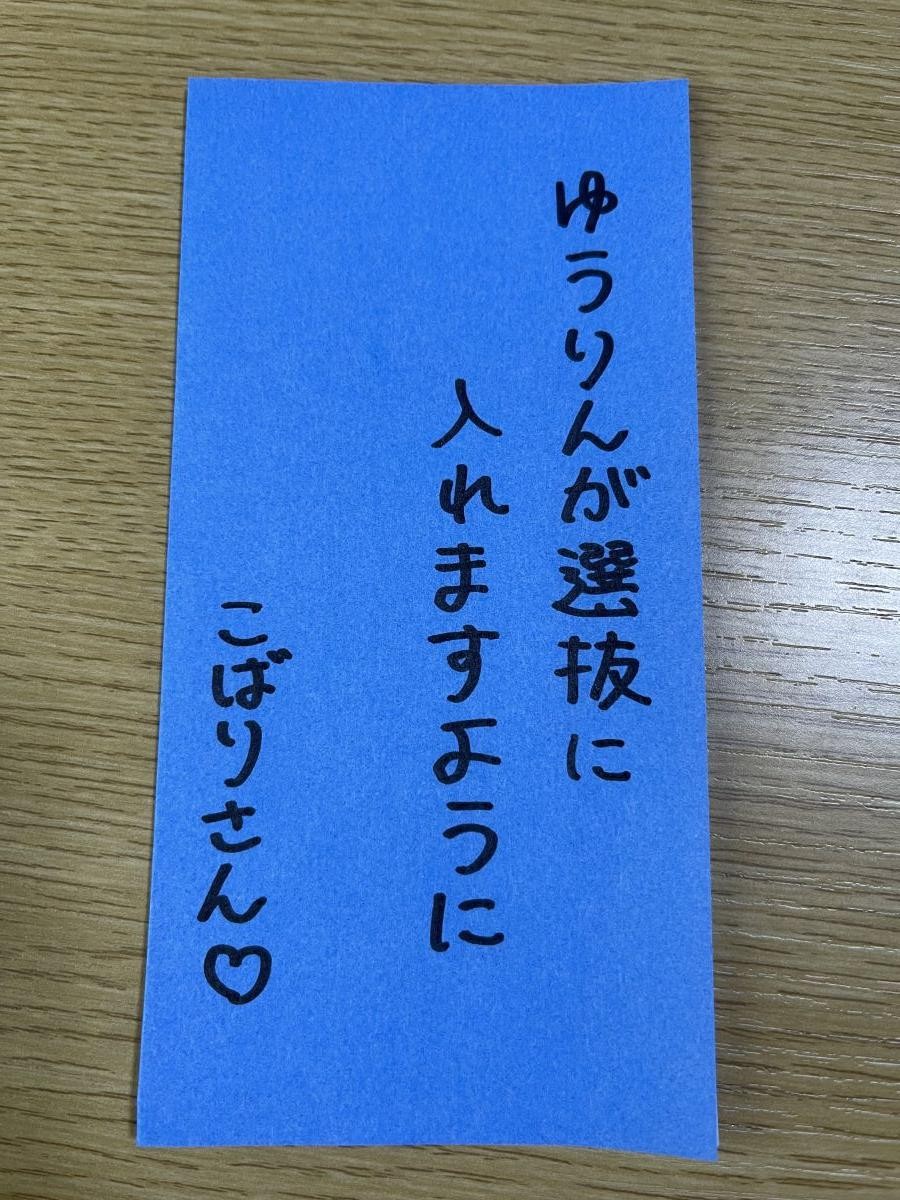 ゆうりんが選抜に
入れますように
こばりさん♡